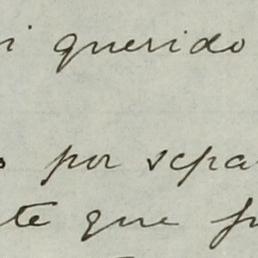 i querido
por sepa
te que fu